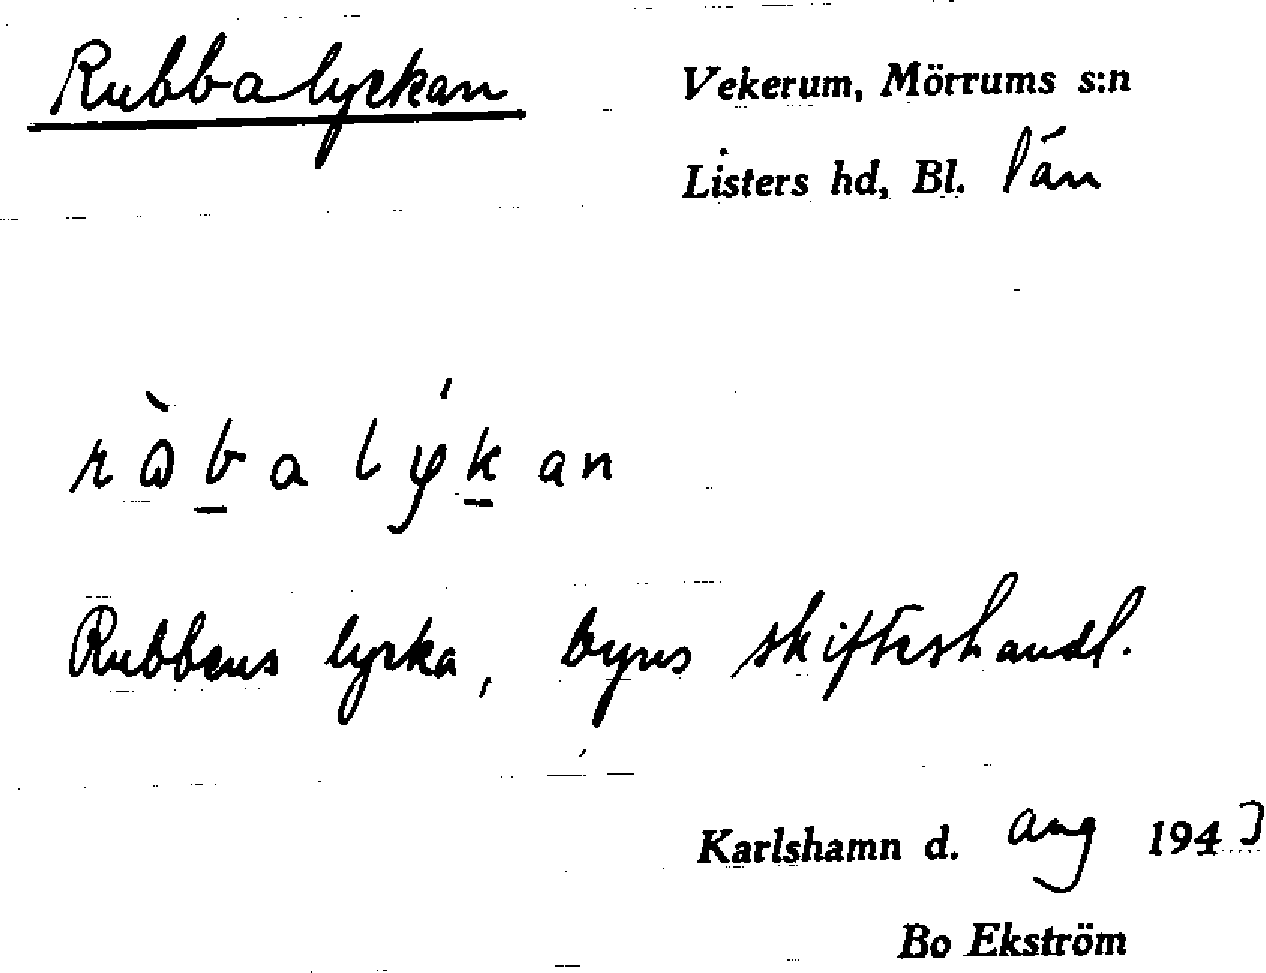 Rubbalyckan
Vekerum, Mörrums s:n
Listers hd, Bl. län
ròbalýkan
Rubbens lycka, byns skifteshandl.
Karlshamn d. aug 194
Bo Ekström